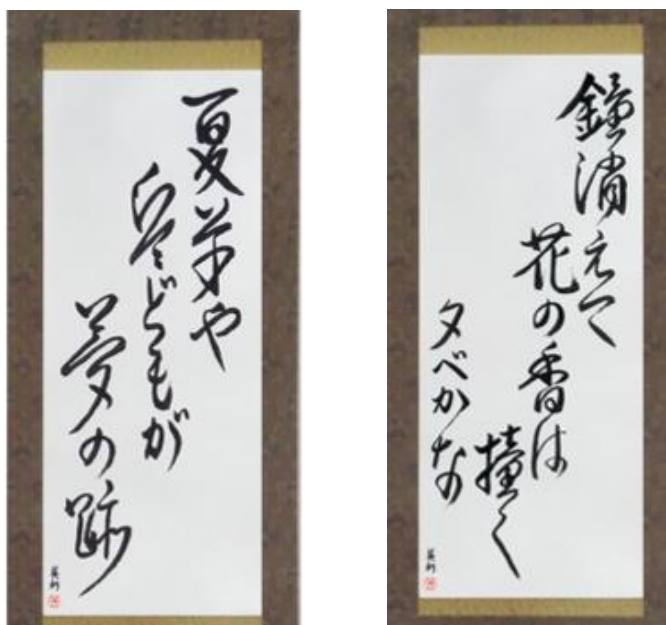 夏草や
兵どもが
夢の跡
鐘消えて
花の香は
撞く
夕べかな